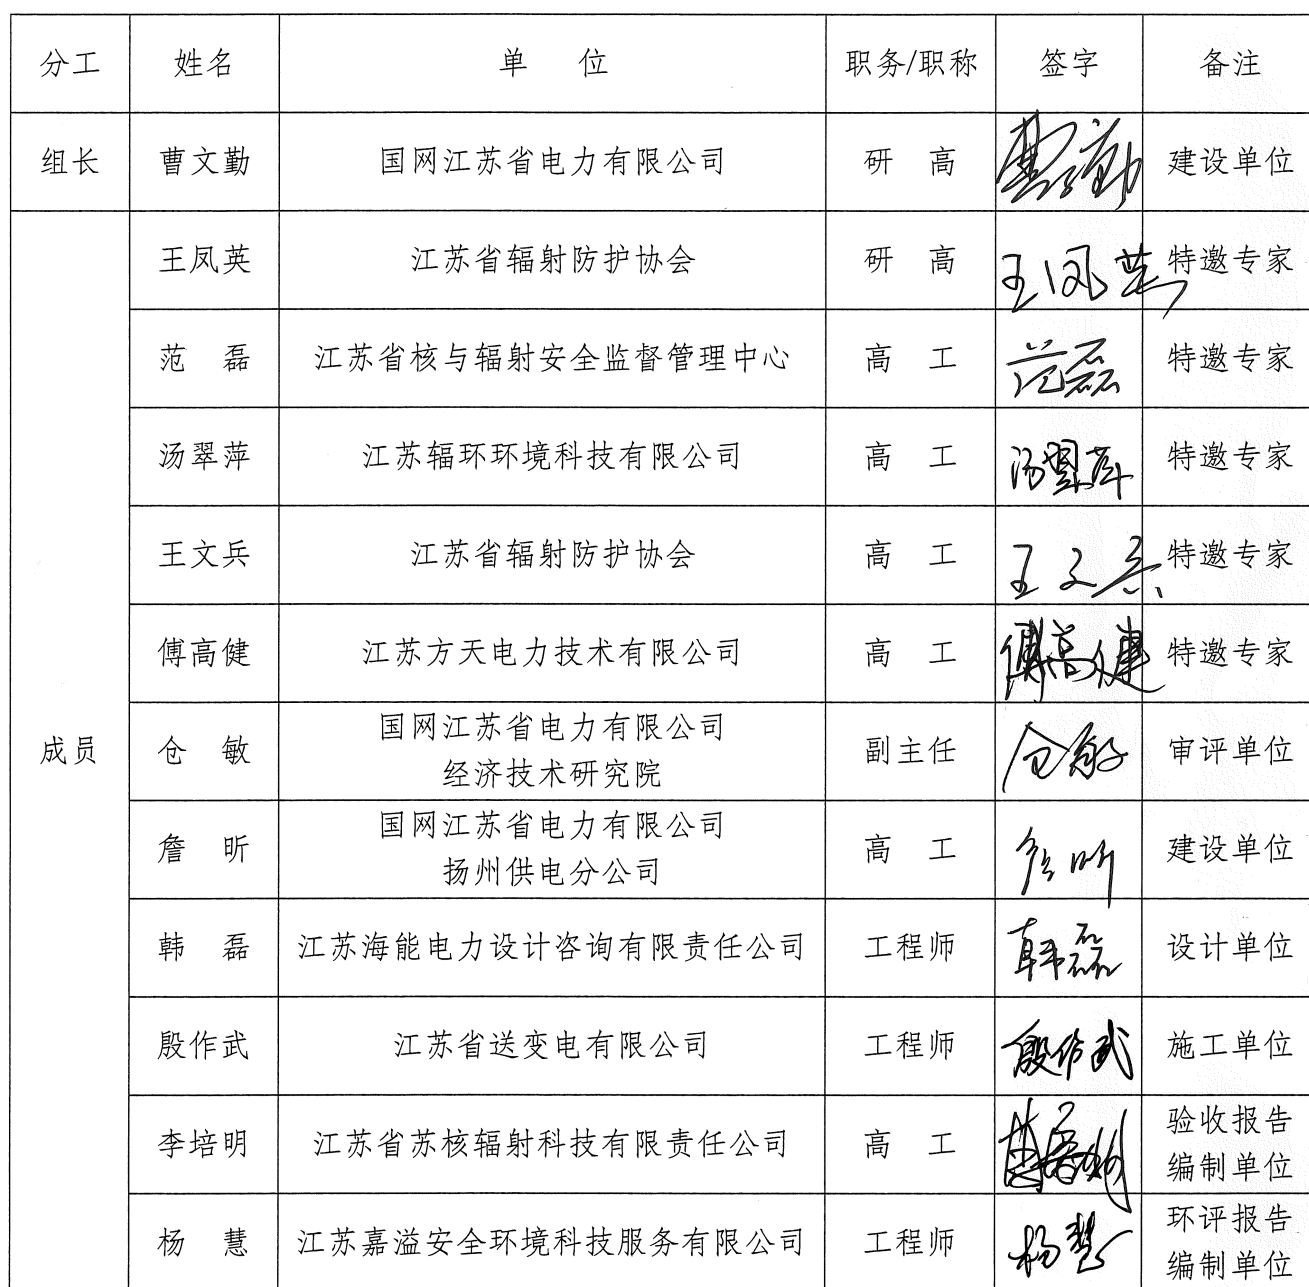 分工 姓名 单 位 职务/职称 签字 备注
组长 曹文勤 国网江苏省电力有限公司 研 高 曹文勤 建设单位
王凤英 江苏省辐射防护协会 研 高 王凤英 特邀专家
范 磊 江苏省核与辐射安全监督管理中心 高 工 范磊 特邀专家
汤翠萍 江苏辐环环境科技有限公司 高 工 汤翠萍 特邀专家
王文兵 江苏省辐射防护协会 高 工 王文兵 特邀专家
傅高健 江苏方天电力技术有限公司 高 工 傅高健 特邀专家
成员 仓 敏 国网江苏省电力有限公司
经济技术研究院 副主任 仓敏 审评单位
詹 昕 国网江苏省电力有限公司
扬州供电分公司 高 工 詹昕 建设单位
韩 磊 江苏海能电力设计咨询有限责任公司 工程师 韩磊 设计单位
殷作武 江苏省送变电有限公司 工程师 殷作武 施工单位
李培明 江苏省苏核辐射科技有限责任公司 高 工 验收报告
编制单位
杨 慧 江苏嘉溢安全环境科技服务有限公司 工程师 杨慧 环评报告
编制单位